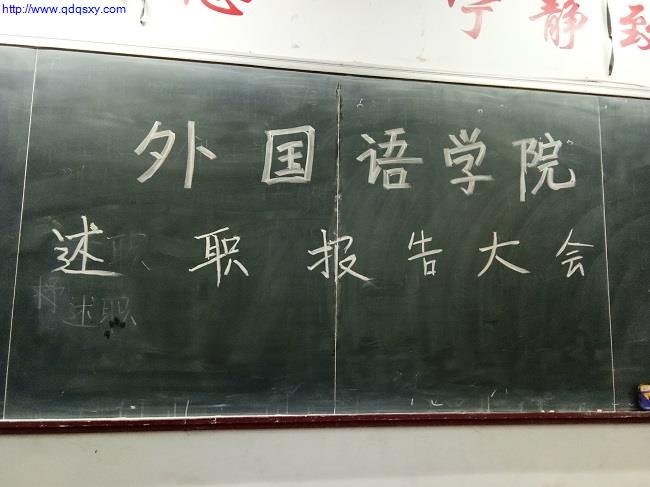 http://www.qdqsxy.com
宁静致
外国语学院
述职报告大会
述职
述职